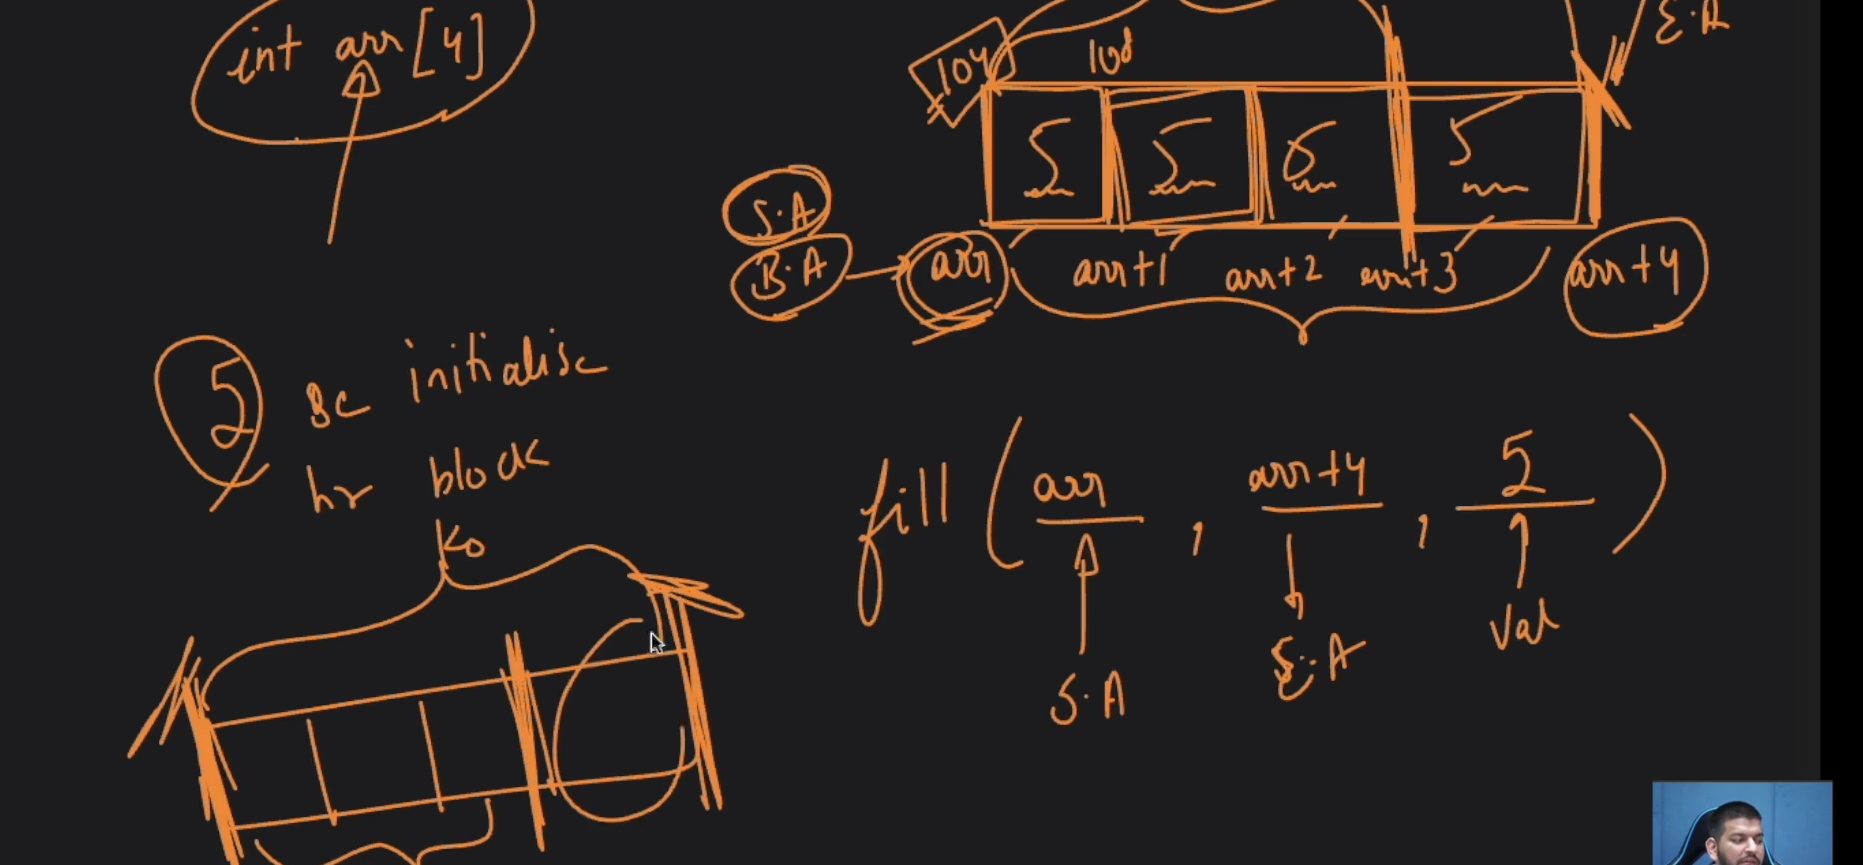 int arr[4]
104 108 E.A
5 5 5 5
S.A
B.A arr arr+1 arr+2 arr+3 arr+4
5 se initialise
hr block
ko
fill ( arr , arr+4 , 5 )
S.A E.A Val